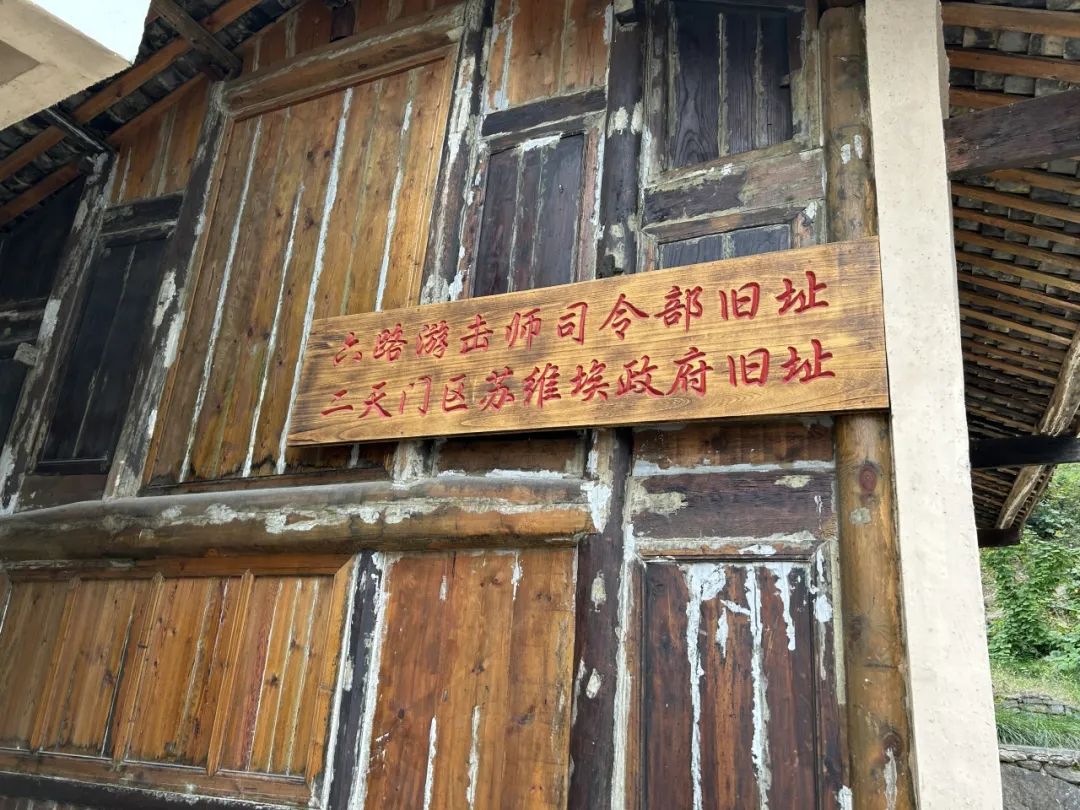 六路游击师司令部旧址
二天门区苏维埃政府旧址